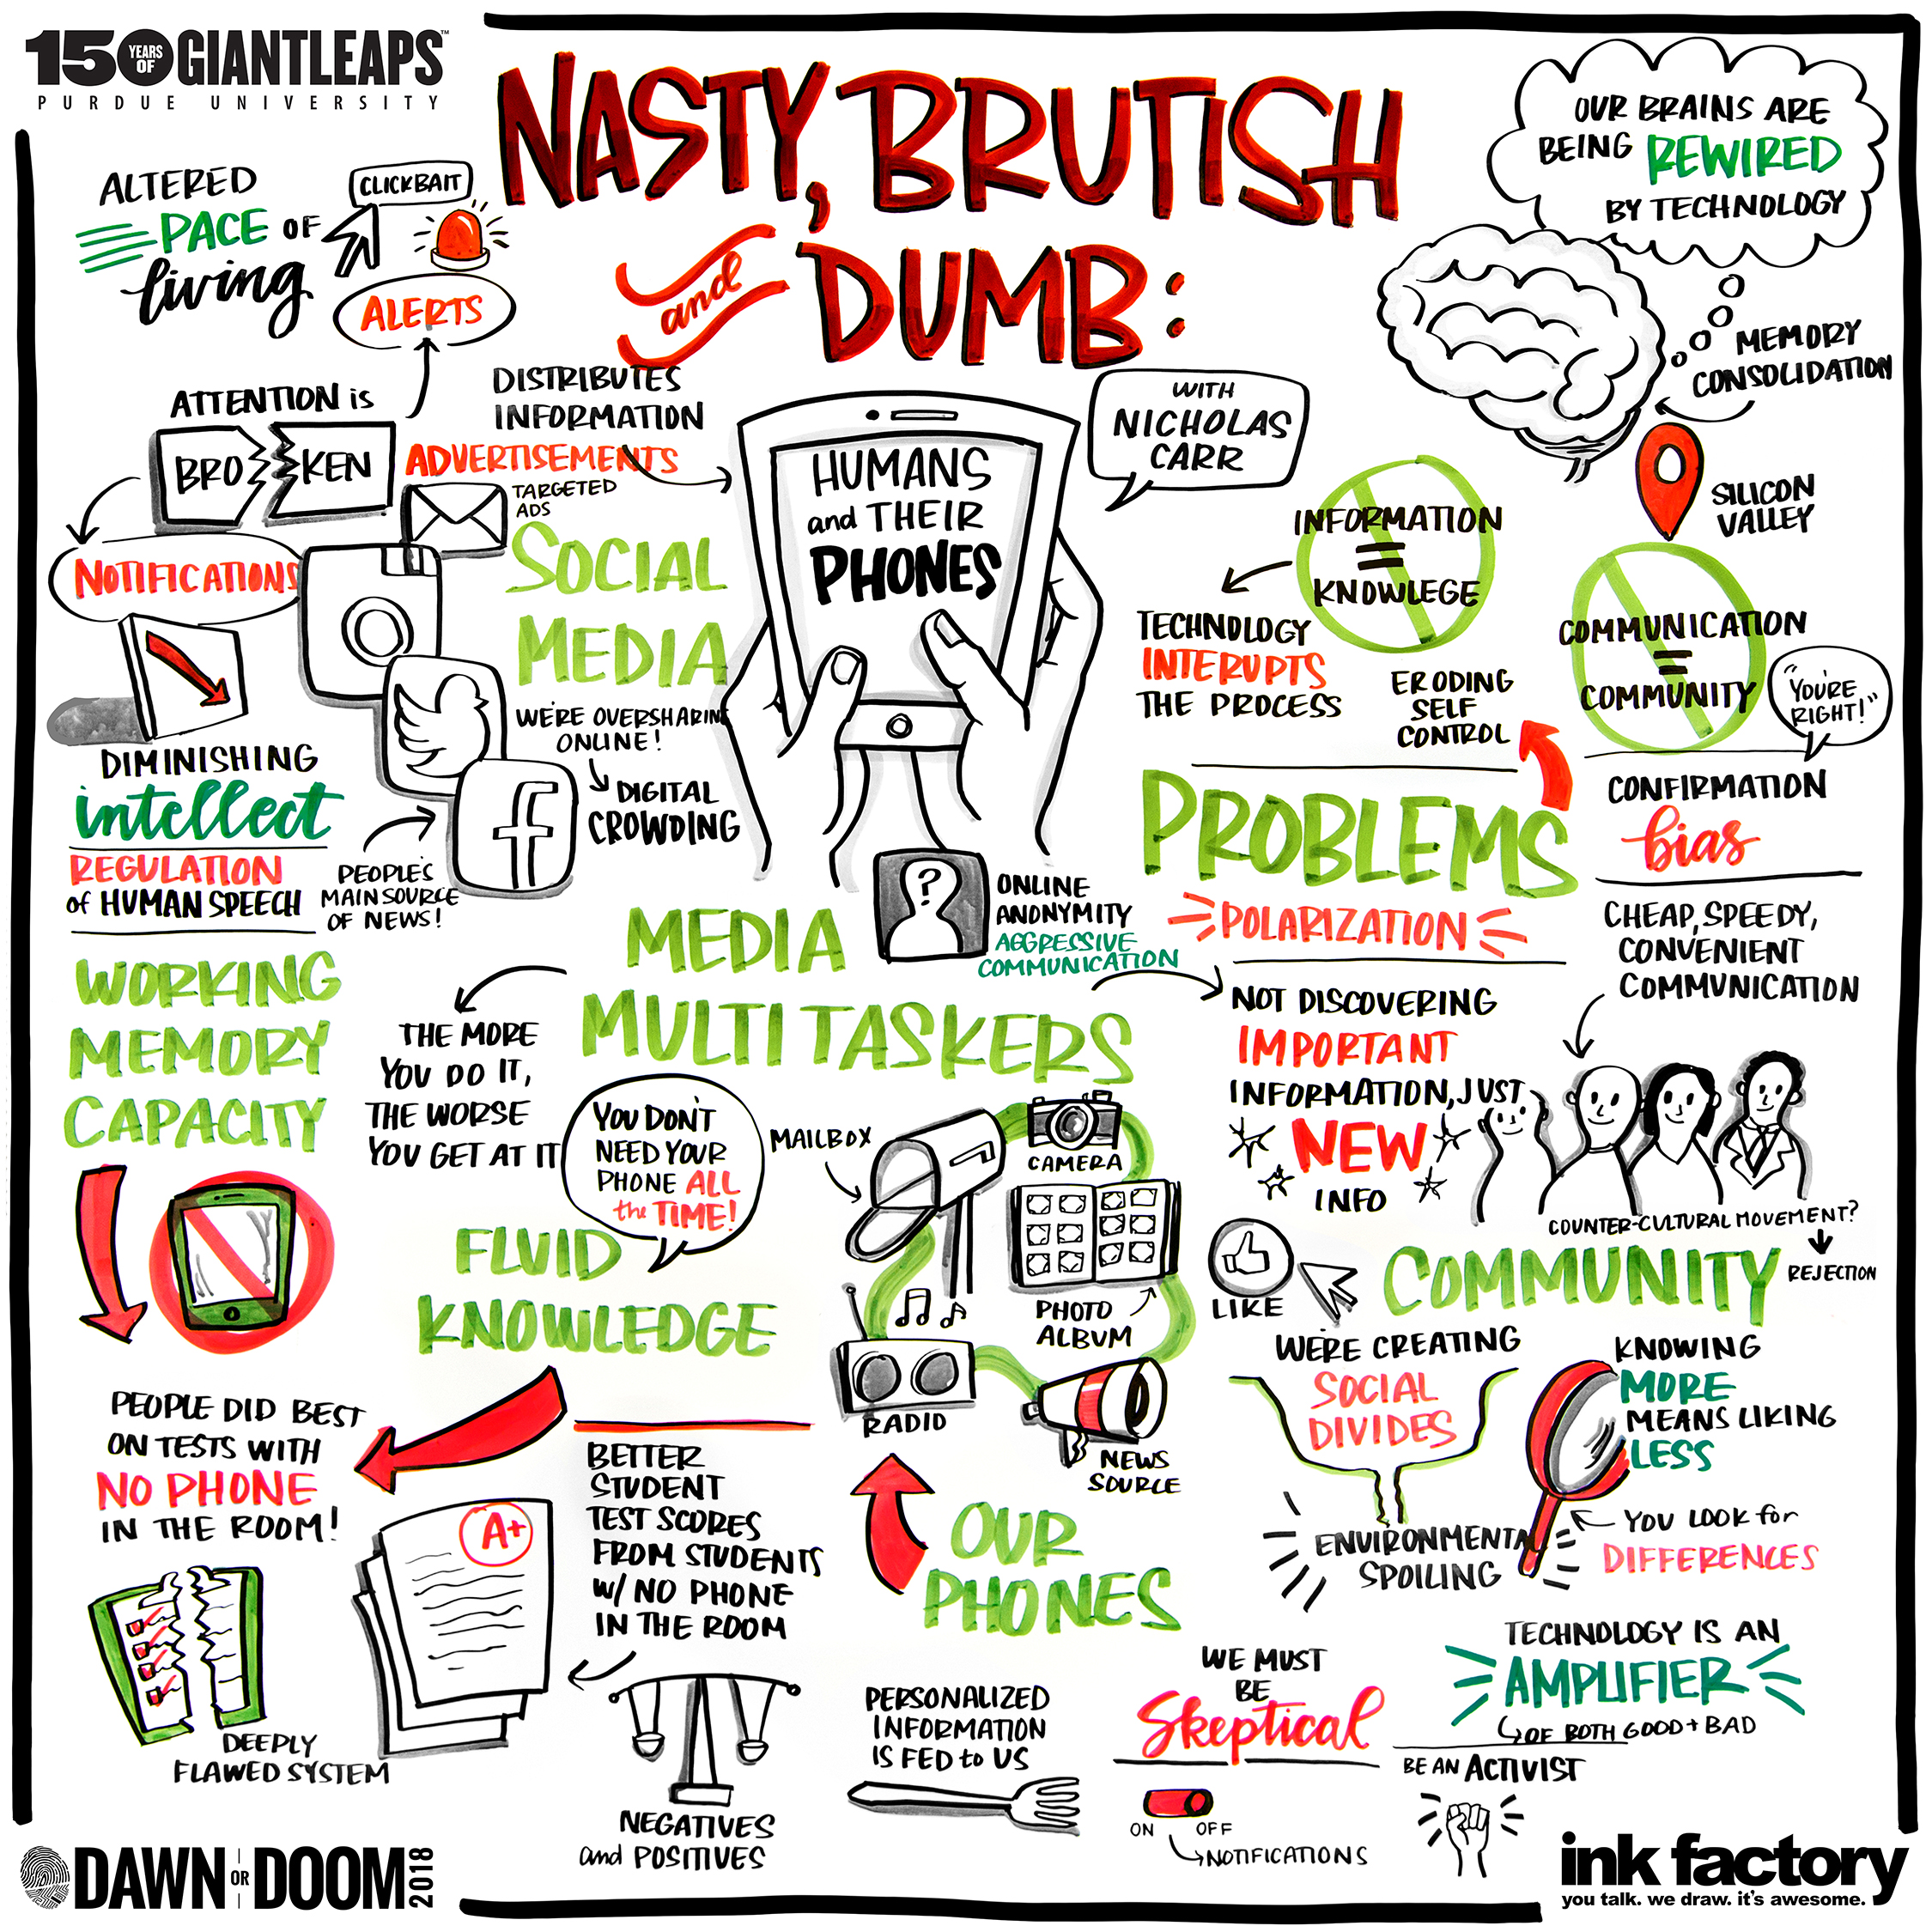 150 YEARS OF GIANTLEAPS™
PURDUE UNIVERSITY
NASTY, BRUTISH
and DUMB:
HUMANS
and THEIR
PHONES
WITH
NICHOLAS
CARR
ALTERED
PACE OF
living
CLICKBAIT
ALERTS
ATTENTION is
BRO KEN
NOTIFICATIONS
DISTRIBUTES
INFORMATION
ADVERTISEMENTS
TARGETED
ADS
SOCIAL
MEDIA
WE'RE OVERSHARING
ONLINE!
DIGITAL
CROWDING
f
PEOPLE'S
MAIN SOURCE
OF NEWS!
DIMINISHING
intellect
REGULATION
of HUMAN SPEECH
WORKING
MEMORY
CAPACITY
PEOPLE DID BEST
ON TESTS WITH
NO PHONE
IN THE ROOM!
DEEPLY
FLAWED SYSTEM
?
ONLINE
ANONYMITY
AGGRESSIVE
COMMUNICATION
MEDIA
MULTITASKERS
THE MORE
YOU DO IT,
THE WORSE
YOU GET AT IT
YOU DON'T
NEED YOUR
PHONE ALL
the TIME!
FLUID
KNOWLEDGE
BETTER
STUDENT
TEST SCORES
FROM STUDENTS
W/ NO PHONE
IN THE ROOM
A+
NEGATIVES
and POSITIVES
MAILBOX
CAMERA
PHOTO
ALBUM
RADIO
NEWS
SOURCE
OUR
PHONES
PERSONALIZED
INFORMATION
IS FED to US
OUR BRAINS ARE
BEING REWIRED
BY TECHNOLOGY
MEMORY
CONSOLIDATION
INFORMATION
=
KNOWLEGE
TECHNOLOGY
INTERUPTS
THE PROCESS
SILICON
VALLEY
COMMUNICATION
=
COMMUNITY
"YOU'RE
RIGHT!"
ERODING
SELF
CONTROL
PROBLEMS
POLARIZATION
CONFIRMATION
bias
CHEAP, SPEEDY,
CONVENIENT
COMMUNICATION
NOT DISCOVERING
IMPORTANT
INFORMATION, JUST
NEW
INFO
COUNTER-CULTURAL MOVEMENT?
REJECTION
LIKE
COMMUNITY
WE'RE CREATING
SOCIAL
DIVIDES
ENVIRONMENTAL
SPOILING
KNOWING
MORE
MEANS LIKING
LESS
YOU LOOK for
DIFFERENCES
WE MUST
BE
Skeptical
ON OFF
NOTIFICATIONS
TECHNOLOGY IS AN
AMPLIFIER
OF BOTH GOOD + BAD
BE AN ACTIVIST
DAWN OR DOOM 2018
ink factory
you talk. we draw. it's awesome.